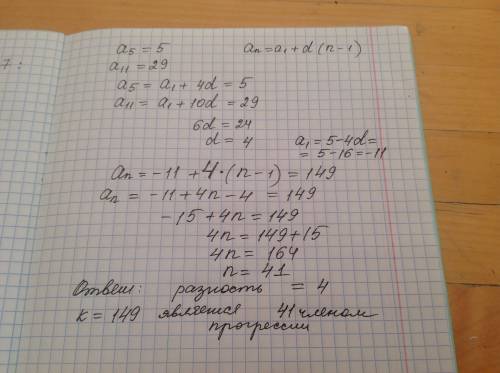 7:
a₅ = 5 aₙ = a₁ + d (n − 1)
a₁₁ = 29
a₅ = a₁ + 4d = 5
a₁₁ = a₁ + 10d = 29
6d = 24
d = 4 a₁ = 5 − 4d =
= 5 − 16 = −11
aₙ = −11 + 4 · (n − 1) = 149
aₙ = −11 + 4n − 4 = 149
−15 + 4n = 149
4n = 149 + 15
4n = 164
n = 41
Ответ: разность = 4
к = 149 является 41 членом
прогрессии